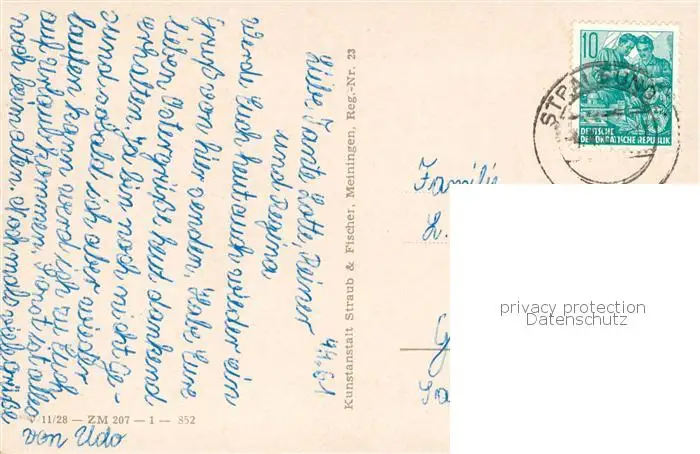 4.4.61
Liebe Tante Lotte, Reiner
und Regina
Werd Euch heut auch wieder ein
Gruß von hier senden, Habe Eure
lieben Ostergrüße heut dankend
erhalten, Ja bin noch nicht Ge-
sund sobald ich aber wieder
laufen kann werd ich zu Euch
auf Urlaub kommen, Sonst ist alles
noch beim alten. Noch mals viele Grüße
von Udo
V/11/28 — ZM 207 — 1 — 852
Kunstanstalt Straub & Fischer, Meiningen, Reg.-Nr. 23
10
DEUTSCHE
DEMOKRATISCHE REPUBLIK
STRALSUND
Familie
privacy protection
Datenschutz